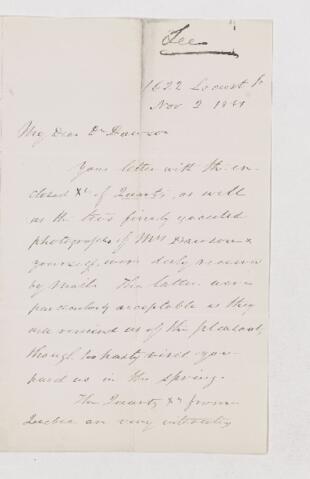 Lee
1622 Locust St
Nov 2 1881
My Dear Dr Dawson
Your letter with the en-
closed Xl of Quartz, as well
as the two finely executed
photographs of Mrs Dawson &
yourself, were duly received
by mail. The latter were
particularly acceptable as they
will remind us of the pleasant,
though too hasty visit you
paid us in the spring.
The Quartz Xls from
Quebec are very interesting